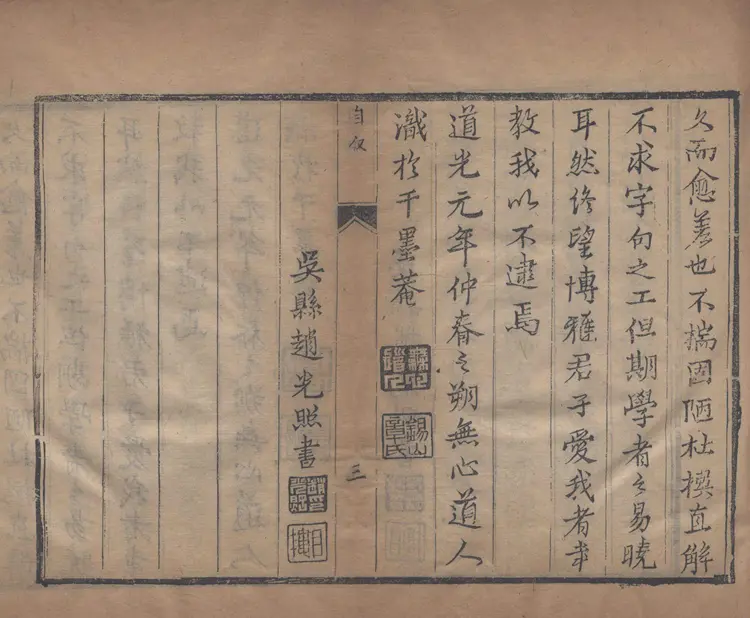 久而愈善也不揣固陋杜撰直解
不求字句之工但期學者之易曉
耳然終望博雅君子愛我者幸
教我以不逮焉
道光元年仲春之朔無心道人
識於千墨菴
錫山
章氏
自叙
三
吳縣趙光照書